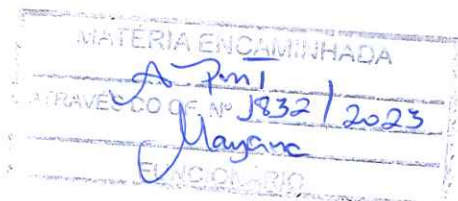 MATÉRIA ENCAMINHADA
A PMT
ATRAVÉS DO OF. Nº 1832 / 2023
Mayana
FUNCIONÁRIO